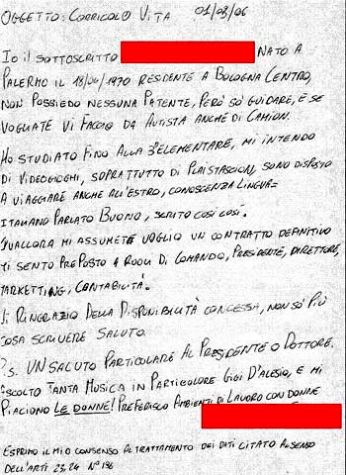 OGGETTO: CORRICOLO VITA 01/03/06
IO IL SOTTOSCRITTO NATO A
PALERMO IL 18/04/1970 RESIDENTE A BOLOGNA CENTRO,
NON POSSIEDO NESSUNA PATENTE, PERÒ SÒ GUIDARE, E SE
VOGLIATE VI FACCIO DA AUTISTA ANCHE DI CAMION.
HO STUDIATO FINO ALLA 3°ELEMENTARE, MI INTENDO
DI VIDEOGIOGHI, SOPRATTUTTO DI PLAISTASCION, SONO DISPOSTO
A VIAGGIARE ANCHE ALL'ESTRO, CONOSCENZA LINGUA=
ITALIANO PARLATO BUONO, SCRITO COSÌ COSÌ.
QUALLORA MI ASSUMETE VOGLIO UN CONTRATTO DEFINITIVO
MI SENTO PREPOSTO A ROOLI DI COMANDO, PRESIDENTE, DIRETTORE,
MARKETTING, CONTABILITÀ.
VI RINGRAZIO DELLA DISPONIBILITÀ CONCESSA, NON SÒ PIÙ
COSA SCRIVERE SALUTO.
P.S. UN SALUTO PARTICOLARE AL PRESIDENTE O DOTTORE.
ASCOLTO TANTA MUSICA IN PARTICOLORE GIGI D'ALESIO, E MI
PIACIONO LE DONNE! PREFERISCO AMBIENTI DI LAVORO CON DONNE
ESPRIMO IL MIO CONSENSO AL TRATTAMENTO DEI DATI CITATO AL SENSO
DELL'ARTI 23,24 N°196